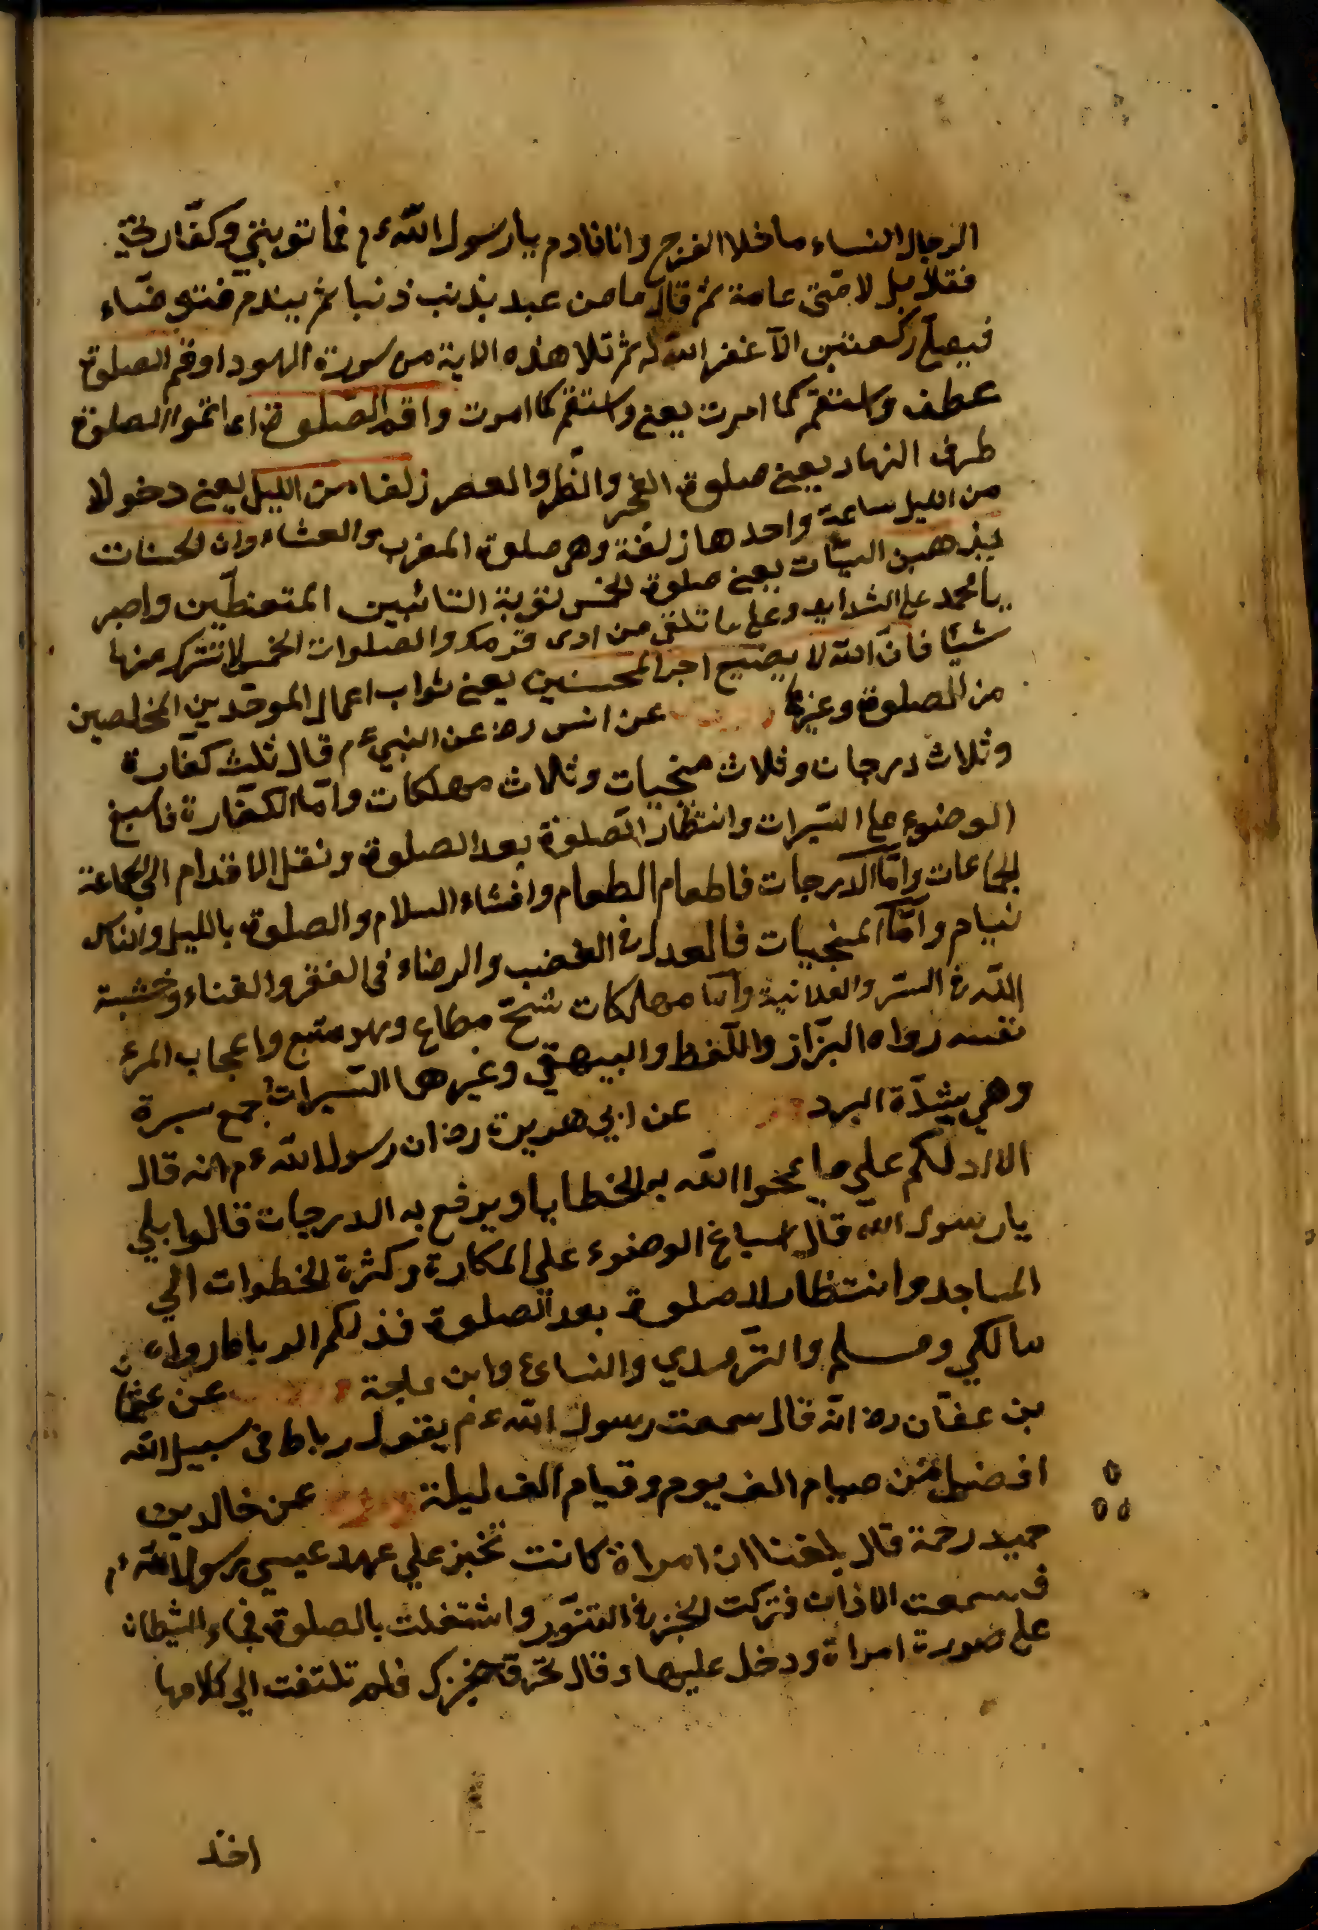 الرجال النساء ما خلا الفرج وانا نادم يا رسول الله ءم فما توبتي وكفارتي
فقلا بل لامتي عامة ثم قال ما من عبد يذنب ذنبا ثم يندم فتوضاء
فيصلي ركعتين الا غفر الله له ثم تلا هذه الاية من سورة الهود اوقم الصلوة
عطف واستقم كما امرت يعني واستقم كما امرت واقم الصلوة اى اتموا الصلوة
طرف النهار يعني صلوة الفجر والظهر والعصر زلفا من الليل يعني دخولا
من الليل ساعة واحدها زلفة وهو صلوة المغرب والعشاء وان الحسنات
يذهبن السيآت يعني صلوة الخمس توبة التائبين المتعظين واصبر
يا محمد على الشدايد وعلى ما تلقى من اذى قومك والصلوات الخمس لا تترك منها
شيئا فان الله لا يضيع اجر المحسنين يعني ثواب اعمال الموحدين المخلصين
من الصلوة وغيرها عن انس رض عن النبي ءم قال ثلث كفارة
وثلاث درجات وثلاث منجيات وثلاث مهلكات واما الكفارة فاسبغ
الوضوء على السبرات وانتظار الصلوة بعد الصلوة ونقل الاقدام الى الجماعة
الجماعات واما الدرجات فاطعام الطعام وافشاء السلام والصلوة بالليل والناس
نيام واما المنجيات فالعدل في الغضب والرضاء في الفقر والغناء وخشية
الله في السر والعلانية واما مهلكات شح مطاع وهو متبع واعجاب المرء
نفسه رواه البزاز واللفظ والبيهقي وغيرهما السبرات جمع سبرة
وهي شدة البرد عن ابي هريرة رض ان رسول الله ءم انه قال
الا ادلكم على ما يمحوا الله به الخطايا ويرفع به الدرجات قالوا بلي
يا رسول الله قال اسباغ الوضوء على المكارة وكثرة الخطوات الي
المساجد وانتظار الصلوة بعد الصلوة فذلكم الرباط رواه
مالكي ومسلم والترمدي والنسائ وابن ماجة عن عثمان
بن عفان رض انه قال سمعت رسول الله ءم يقول رباط في سبيل الله
افضل من صيام الف يوم وقيام الف ليلة عن خالد بن
حميد رحمة قال بلغنا ان امراة كانت تخبز علي عهد عيسي رسول الله ءم
فسمعت الاذان فتركت الخبز في التنور واشتغلت بالصلوة فجاء الشيطان
على صورة امراة ودخل عليها وقال تحرق خبزك فلم تلتفت الى كلامها
اخذ